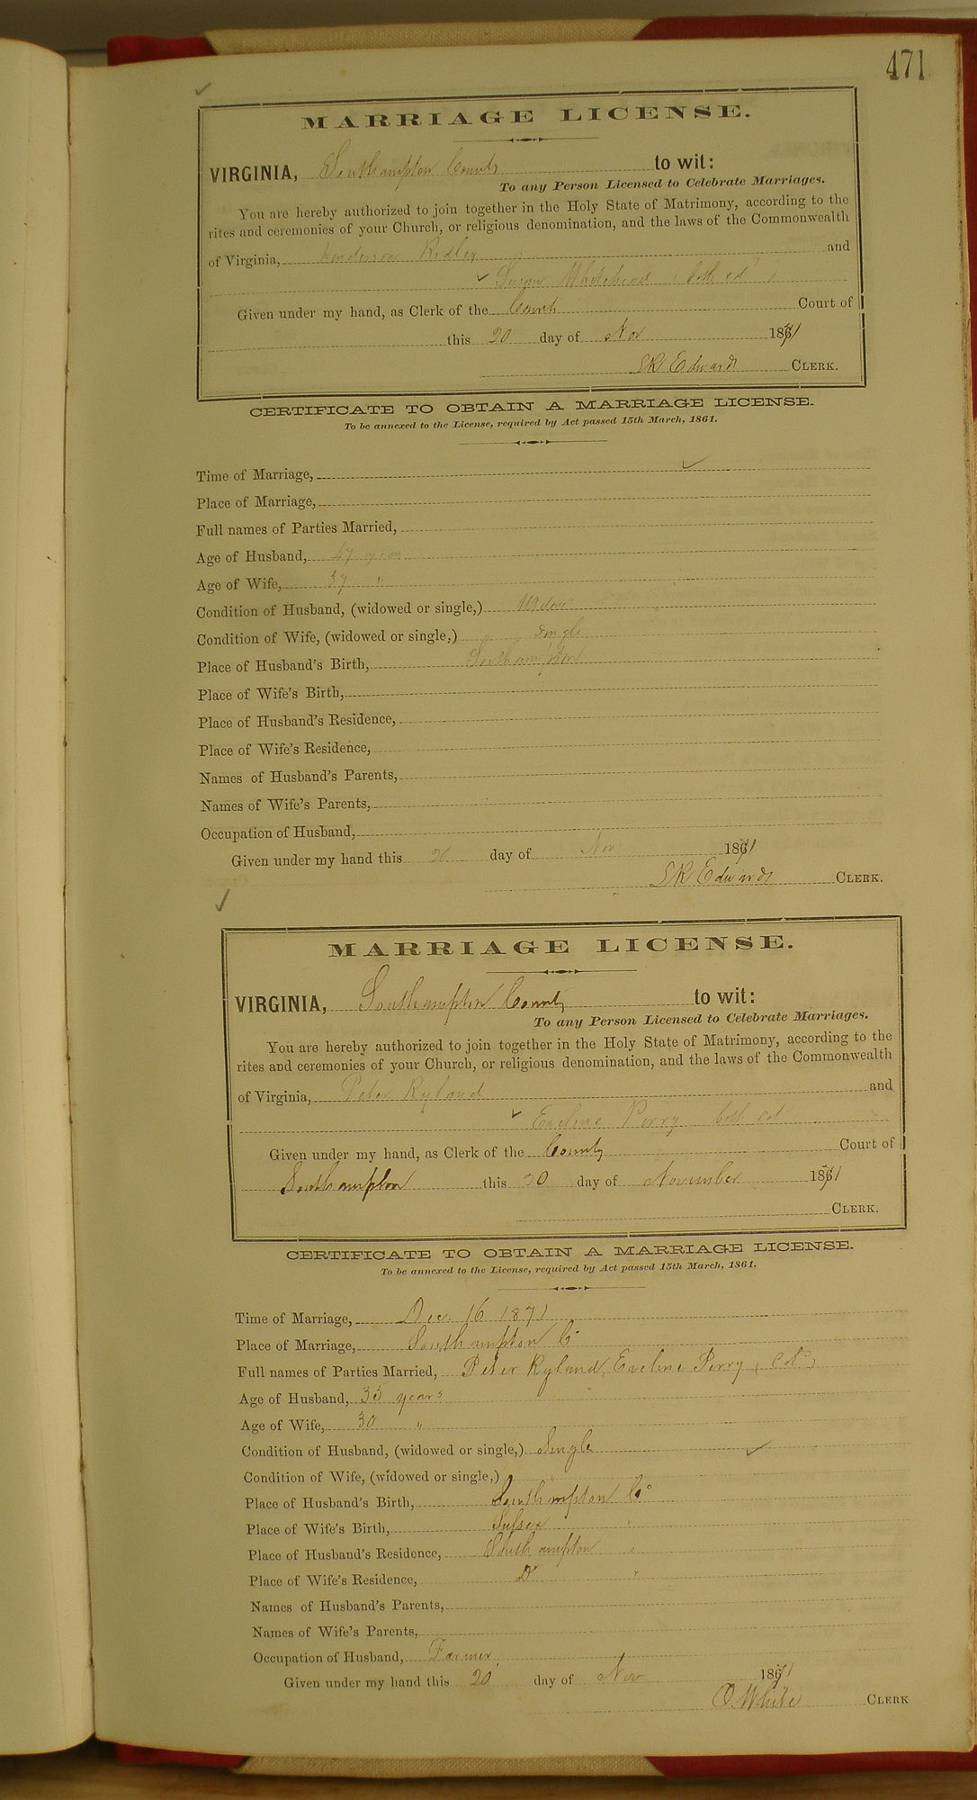 471
MARRIAGE LICENSE.
VIRGINIA, Southampton County to wit:
To any Person Licensed to Celebrate Marriages.
You are hereby authorized to join together in the Holy State of Matrimony, according to the
rites and ceremonies of your Church, or religious denomination, and the laws of the Commonwealth
of Virginia, Henderson Ridley and
Susan Whitehead (both cd)
Given under my hand, as Clerk of the County Court of
this 20 day of Nov 1871
SR Edwards CLERK.
CERTIFICATE TO OBTAIN A MARRIAGE LICENSE.
To be annexed to the License, required by Act passed 15th March, 1861.
Time of Marriage,
Place of Marriage,
Full names of Parties Married,
Age of Husband, 47 years
Age of Wife, 37 "
Condition of Husband, (widowed or single,) Widow
Condition of Wife, (widowed or single,) Single
Place of Husband's Birth, Southampton
Place of Wife's Birth,
Place of Husband's Residence,
Place of Wife's Residence,
Names of Husband's Parents,
Names of Wife's Parents,
Occupation of Husband,
Given under my hand this 20 day of Nov 1871
SR Edwards CLERK.
MARRIAGE LICENSE.
VIRGINIA, Southampton County to wit:
To any Person Licensed to Celebrate Marriages.
You are hereby authorized to join together in the Holy State of Matrimony, according to the
rites and ceremonies of your Church, or religious denomination, and the laws of the Commonwealth
of Virginia, Peter Ryland and
Eveline Perry both col
Given under my hand, as Clerk of the County Court of
Southampton this 20 day of November 1871
CLERK.
CERTIFICATE TO OBTAIN A MARRIAGE LICENSE.
To be annexed to the License, required by Act passed 15th March, 1861.
Time of Marriage, Dec 16 1871
Place of Marriage, Southampton Co
Full names of Parties Married, Peter Ryland, Eveline Perry (Cold)
Age of Husband, 35 years
Age of Wife, 30 "
Condition of Husband, (widowed or single,) Single
Condition of Wife, (widowed or single,)
Place of Husband's Birth, Southampton Co
Place of Wife's Birth, Sussex "
Place of Husband's Residence, Southampton "
Place of Wife's Residence, Do "
Names of Husband's Parents,
Names of Wife's Parents,
Occupation of Husband, Farmer
Given under my hand this 20 day of Nov 1871
O. White CLERK